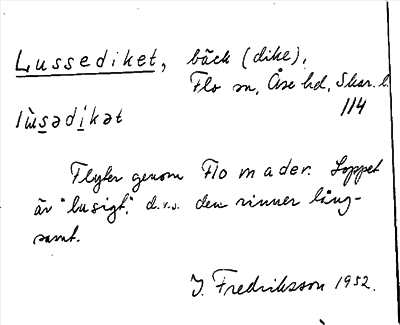 Lussediket, bäck (dike),
Flo sn, Åse hd, Skar. l.
114
lùsədikət
Flyter genom Flo mader. Loppet
är "lusigt," d.v.s. den rinner lång-
samt.
J. Fredriksson 1952.